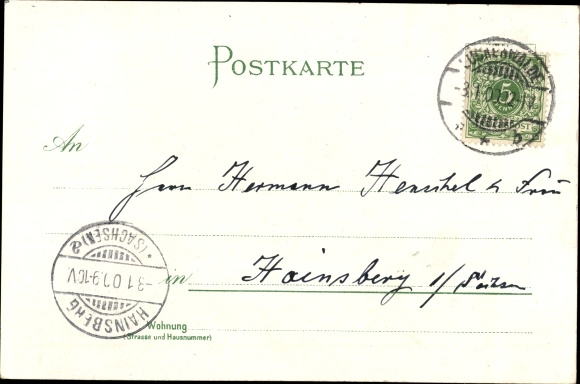 POSTKARTE
-3.1.0
5
An
Herrn Hermann Henschel & Frau
in Hainsberg i/Sachsen
HAINSBERG
(SACHSEN)
-3.1.0 .9-10V.
Wohnung
(Strasse und Hausnummer)